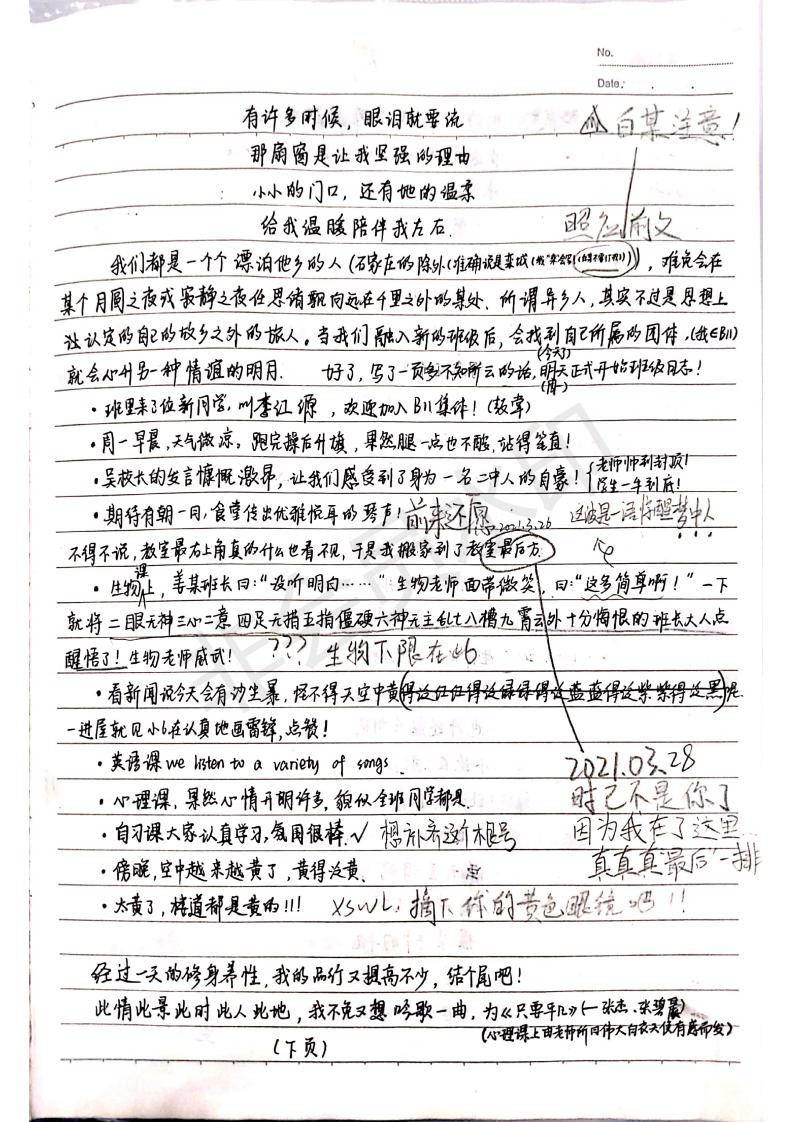 No.
Date: . .
有许多时候，眼泪就要流
白某注意！
那扇窗是让我坚强的理由
小小的门口，还有她的温柔
给我温暖陪伴我左右.
照应前文
我们都是一个个漂泊他乡的人(石家庄的除外(准确说是栾城，难免会在
某个月圆之夜或寂静之夜任思绪飘向远在千里之外的某处.所谓异乡人，其实不过是思想上
让认定的自己的故乡之外的旅人。当我们融入新的班级后，会找到自己所属的团体，(我∈B11)
就会心升另一种情谊的明月. 好了，写了一页多不知所云的话，明天正式开始班级日志！
(今天)
(周一)
·班里来了位新同学，叫李江源，欢迎加入B11集体！(鼓掌)
·周一早晨，天气微凉，跑完操后升旗，果然腿一点也不酸，站得笔直！
·吴校长的发言慷慨激昂，让我们感受到了身为一名二中人的自豪！
老师师到封顶！
学生一车到底！
·期待有朝一日，食堂传出优雅悦耳的琴声！
前来还愿
2021.3.26
这波是一语惊醒梦中人
不得不说，教室最右上角真的什么也看不见，于是我搬家到了教室最后方.
·生物课上，姜某班长曰：“没听明白……”生物老师面带微笑，曰：“这多简单啊！”一下
就将二眼无神三心二意四足无措五指僵硬六神无主乱七八糟九霄云外十分悔恨的班长大人点
醒悟了！生物老师威武！
??? 生物下限在此
·看新闻说今天会有沙尘暴，怪不得天空中黄(得泛红红得泛绿绿得泛蓝蓝得泛紫紫得泛黑)呢
一进屋就见小6在认真地画雷锋，点赞！
·英语课we listen to a variety of songs.
2021.03.28
·心理课，果然心情开朗许多，貌似全班同学都是.
时已不是你了
·自习课大家认真学习，氛围很棒.√
想补齐这个根号
因为我在了这里
·傍晚，空中越来越黄了，黄得泛黄.
真真真“最后”一排
·太黄了，楼道都是黄的!!!
XSWL，摘下你的黄色眼镜吧!!
经过一天的修身养性，我的品行又提高不少，结个尾吧！
此情此景此时此人此地，我不免又想吟歌一曲，为《只要平凡》(—张杰、张碧晨)
(心理课上由老师所曰伟大白衣天使有感而发)
(下页)